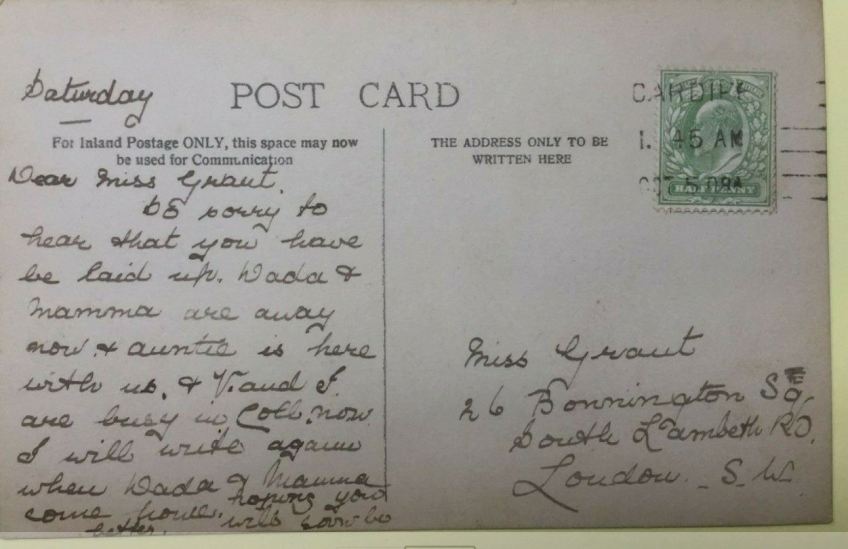 Saturday
POST CARD
For Inland Postage ONLY, this space may now
be used for Communication
THE ADDRESS ONLY TO BE
WRITTEN HERE
CARDIFF
45 AM
HALF PENNY
Dear Miss Grant.
sorry to
hear that you have
be laid up. Dada &
Mamma are away
now & auntie is here
with us. & V. and I
are busy in Coll. now
I will write again
when Dada & Mamma
come home. hoping you
will soon be
better.
Miss Grant
26 Bonnington Sq
South Lambeth RD.
London. S. W.